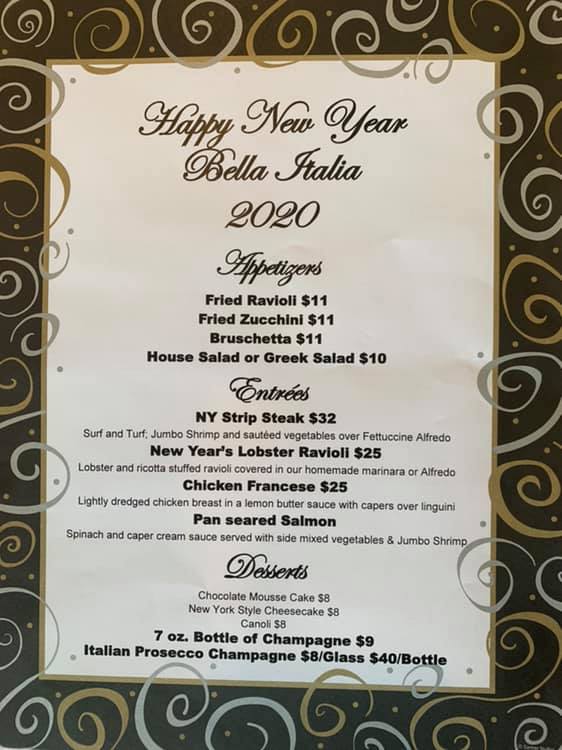 Happy New Year
Bella Italia
2020
Appetizers
Fried Ravioli $11
Fried Zucchini $11
Bruschetta $11
House Salad or Greek Salad $10
Entrées
NY Strip Steak $32
Surf and Turf; Jumbo Shrimp and sautéed vegetables over Fettuccine Alfredo
New Year's Lobster Ravioli $25
Lobster and ricotta stuffed ravioli covered in our homemade marinara or Alfredo
Chicken Francese $25
Lightly dredged chicken breast in a lemon butter sauce with capers over linguini
Pan seared Salmon
Spinach and caper cream sauce served with side mixed vegetables & Jumbo Shrimp
Desserts
Chocolate Mousse Cake $8
New York Style Cheesecake $8
Canoli $8
7 oz. Bottle of Champagne $9
Italian Prosecco Champagne $8/Glass $40/Bottle